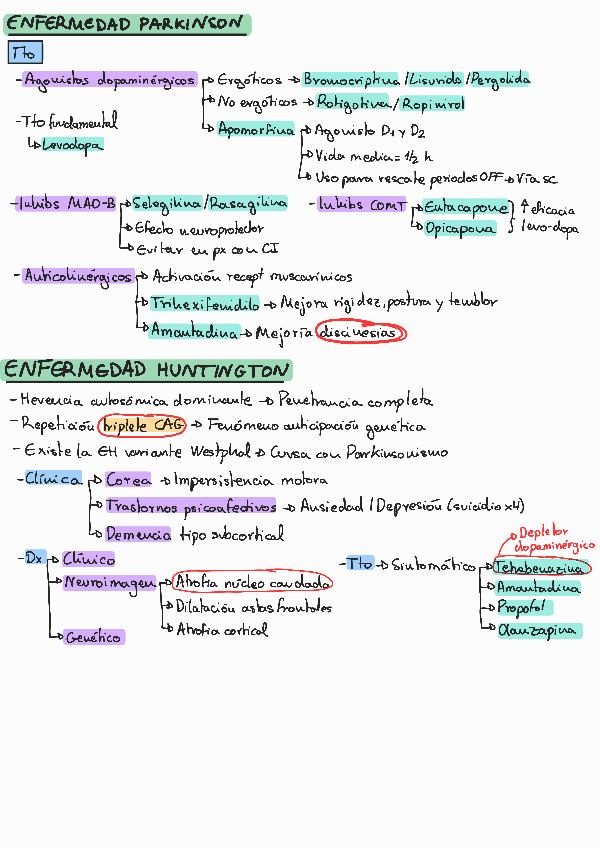 ENFERMEDAD PARKINSON
Tto
- Agonistas dopaminérgicos → Ergóticos → Bromocriptina / Lisurida / Pergolida
→ No ergóticos → Rotigotina / Ropinirol
- Tto fundamental
↳ Levodopa
→ Apomorfina → Agonista D1 y D2
→ Vida media = 1/2 h
→ Uso para rescate periodos OFF → Vía SC
- Inhibs MAO-B → Selegilina / Rasagilina
→ Efecto neuroprotector
→ Evitar en px con CI
- Inhibs COMT → Entacapone } ↑ eficacia
→ Opicapona } levo-dopa
- Anticolinérgicos → Activación recept muscarínicos
→ Trihexifenidilo → Mejora rigidez, postura y temblor
→ Amantadina → Mejoría discinesias
ENFERMEDAD HUNTINGTON
- Herencia autosómica dominante → Penetrancia completa
- Repetición triplete CAG → Fenómeno anticipación genética
- Existe la EH variante Westphal → Cursa con Parkinsonismo
- Clínica → Corea → Impersistencia motora
→ Trastornos psicoafectivos → Ansiedad / Depresión (suicidio x4)
→ Demencia tipo subcortical
- Dx → Clínico
→ Neuroimagen → Atrofia núcleo caudado
→ Dilatación astas frontales
→ Atrofia cortical
→ Genético
→ Depletor
dopaminérgico
- Tto → Sintomático → Tetrabenazina
→ Amantadina
→ Propofol
→ Olanzapina